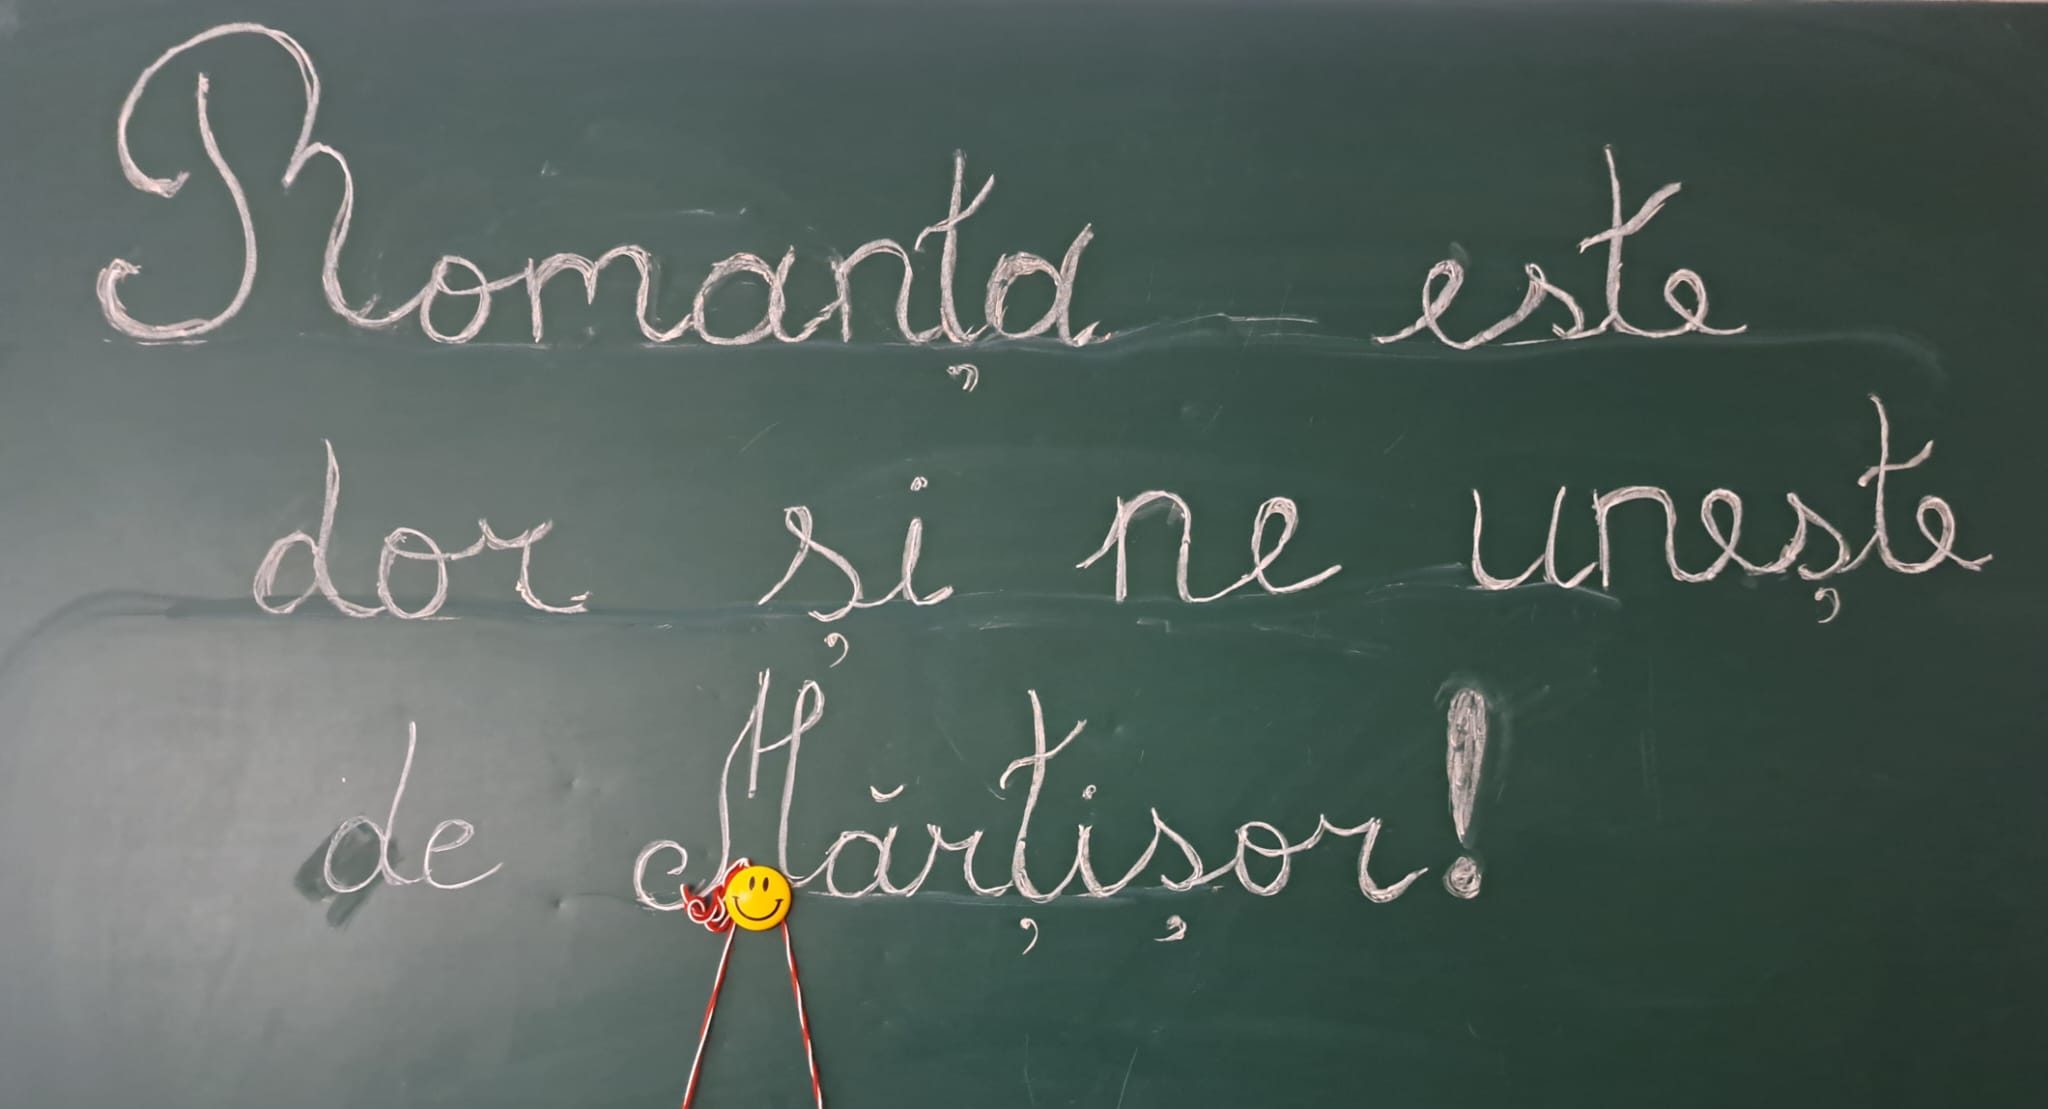 Romanța este
dor și ne unește
de Mărțișor!